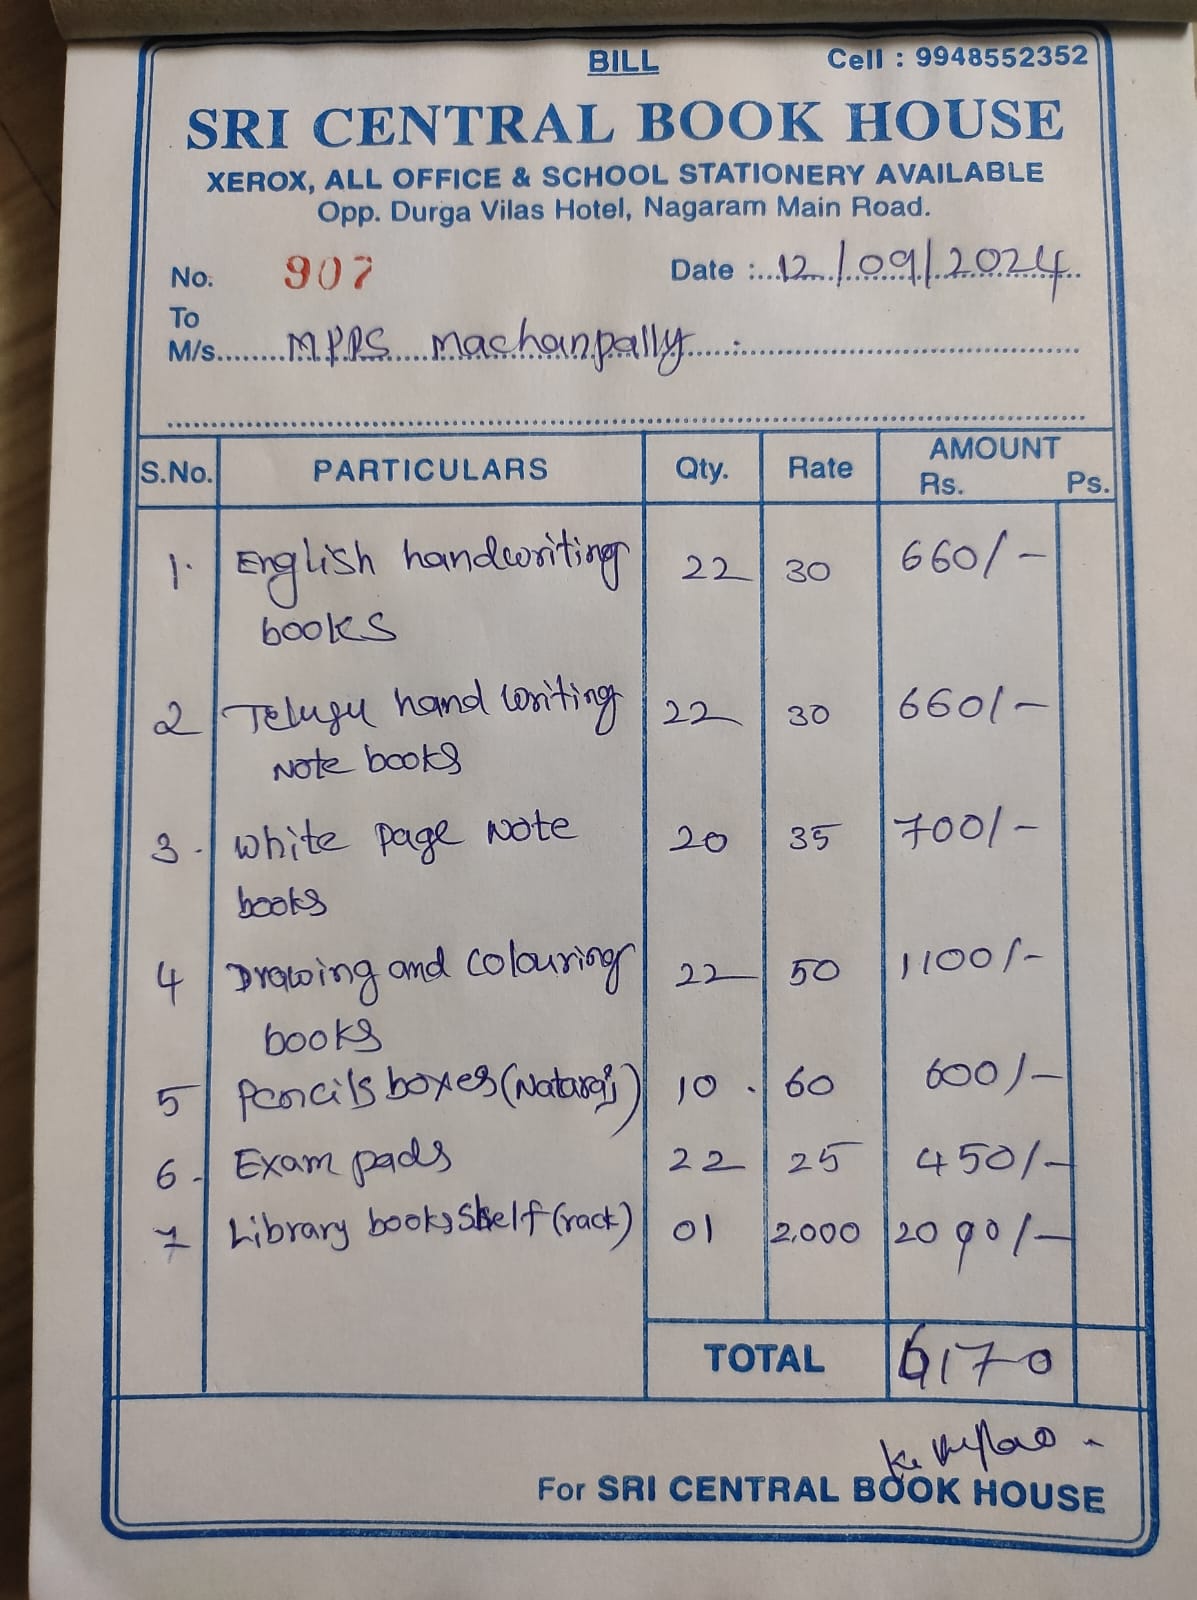 BILL Cell : 9948552352
SRI CENTRAL BOOK HOUSE
XEROX, ALL OFFICE & SCHOOL STATIONERY AVAILABLE
Opp. Durga Vilas Hotel, Nagaram Main Road.
No. 907 Date : 12/09/2024
To
M/s. MPPS Machanpally
S.No. PARTICULARS Qty. Rate AMOUNT
Rs. Ps.
1. English handwriting 22 30 660/-
books
2 Telugu hand writing 22 30 660/-
Note books
3. White page Note 20 35 700/-
books
4 Drawing and colouring 22 50 1100/-
books
5 Pencils boxes (Nataraj) 10 60 600/-
6. Exam pads 22 25 450/-
7 Library books Shelf (rack) 01 2,000 2000/-
TOTAL 6170
For SRI CENTRAL BOOK HOUSE